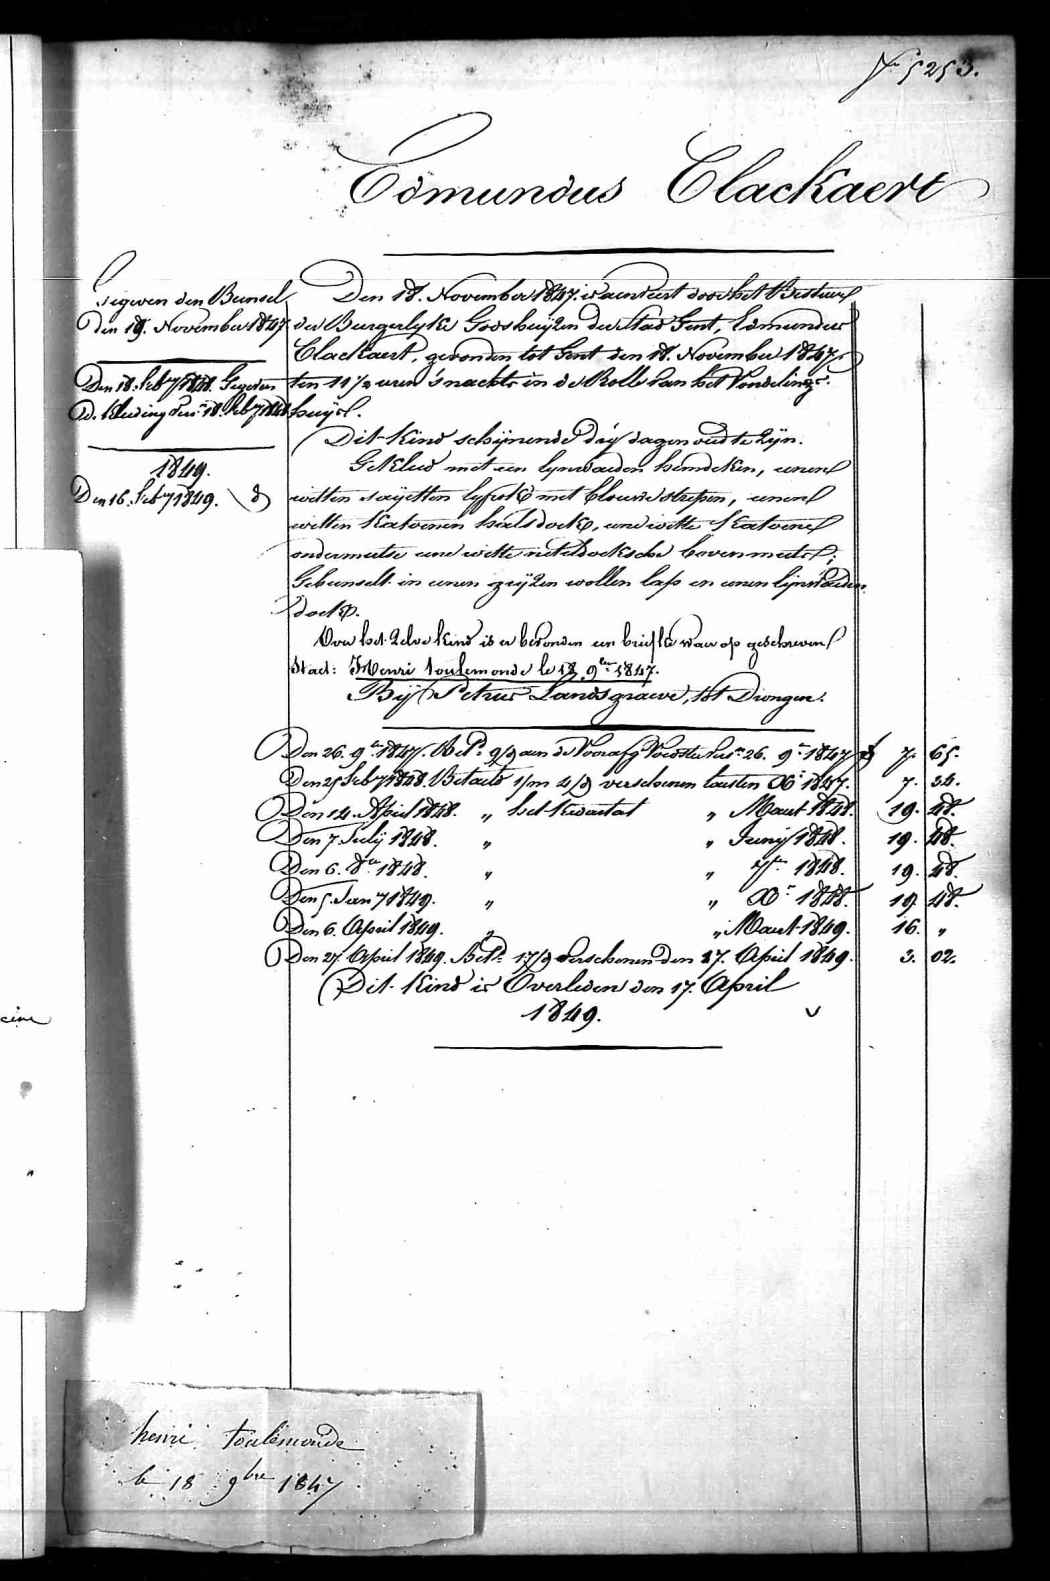 N° 5253.
Edmundus Clackaert
Gegeven den Bunsel
den 19. November 1847.
Den 18. feb 7 1848. Gegeven
d. kleeding van 18. feb 7 1848
1849.
Den 16. feb 7 1849.
Den 18. November 1847. is aenveert door het Bestuer
der Burgerlyke Godshuyzen der stad Gent, Edmundus
Clackaert, gevonden tot Gent den 18. November 1847,
ten 11 1/2 uren 's nachts in de Rolle van het Vondelings-
huys.
Dit kind schijnende dry dagen oud te zijn.
Gekleed met een lynwaeden hemdeken, eenen
witten sayetten lyfrok met blauwe strepen, eenen
witten katoenen halsdoek, eene witte katoene
ondermuts eene witte neteldoeksche bovenmuts;
Gebunselt in eenen gryzen wollen lap en eenen lijnwaeden
doek.
Over het zelve kind is er bevonden een briefke waer op geschreven
staet: Henri toulemonde le 18 9bre 1847.
Bij Petrus Landsgraeve, tot Drongen.
Den 26. 9r 1847. Betd 9/d aen de Voorafg Voedster 26. 9r 1847 7. 65.
Den 25 feb 7 1848. Betaeld 1/m 4/d verschenen laesten Xr 1847. 7. 34.
Den 14. April 1848. " het kwartael " Maert 1848. 19. 48.
Den 7 July 1848. " " Juny 1848. 19. 48.
Den 6. 8r 1848. " " 7r 1848. 19. 48.
Den 5. Jan 7 1849. " " Xr 1848. 19. 48.
Den 6. April 1849. " " Maert 1849. 16. "
Den 27 April 1849. Betd 17/d verschenen den 17. April 1849. 3. 02.
Dit kind is Overleden den 17. April
1849.
henri toulemonde
le 18 9bre 1847